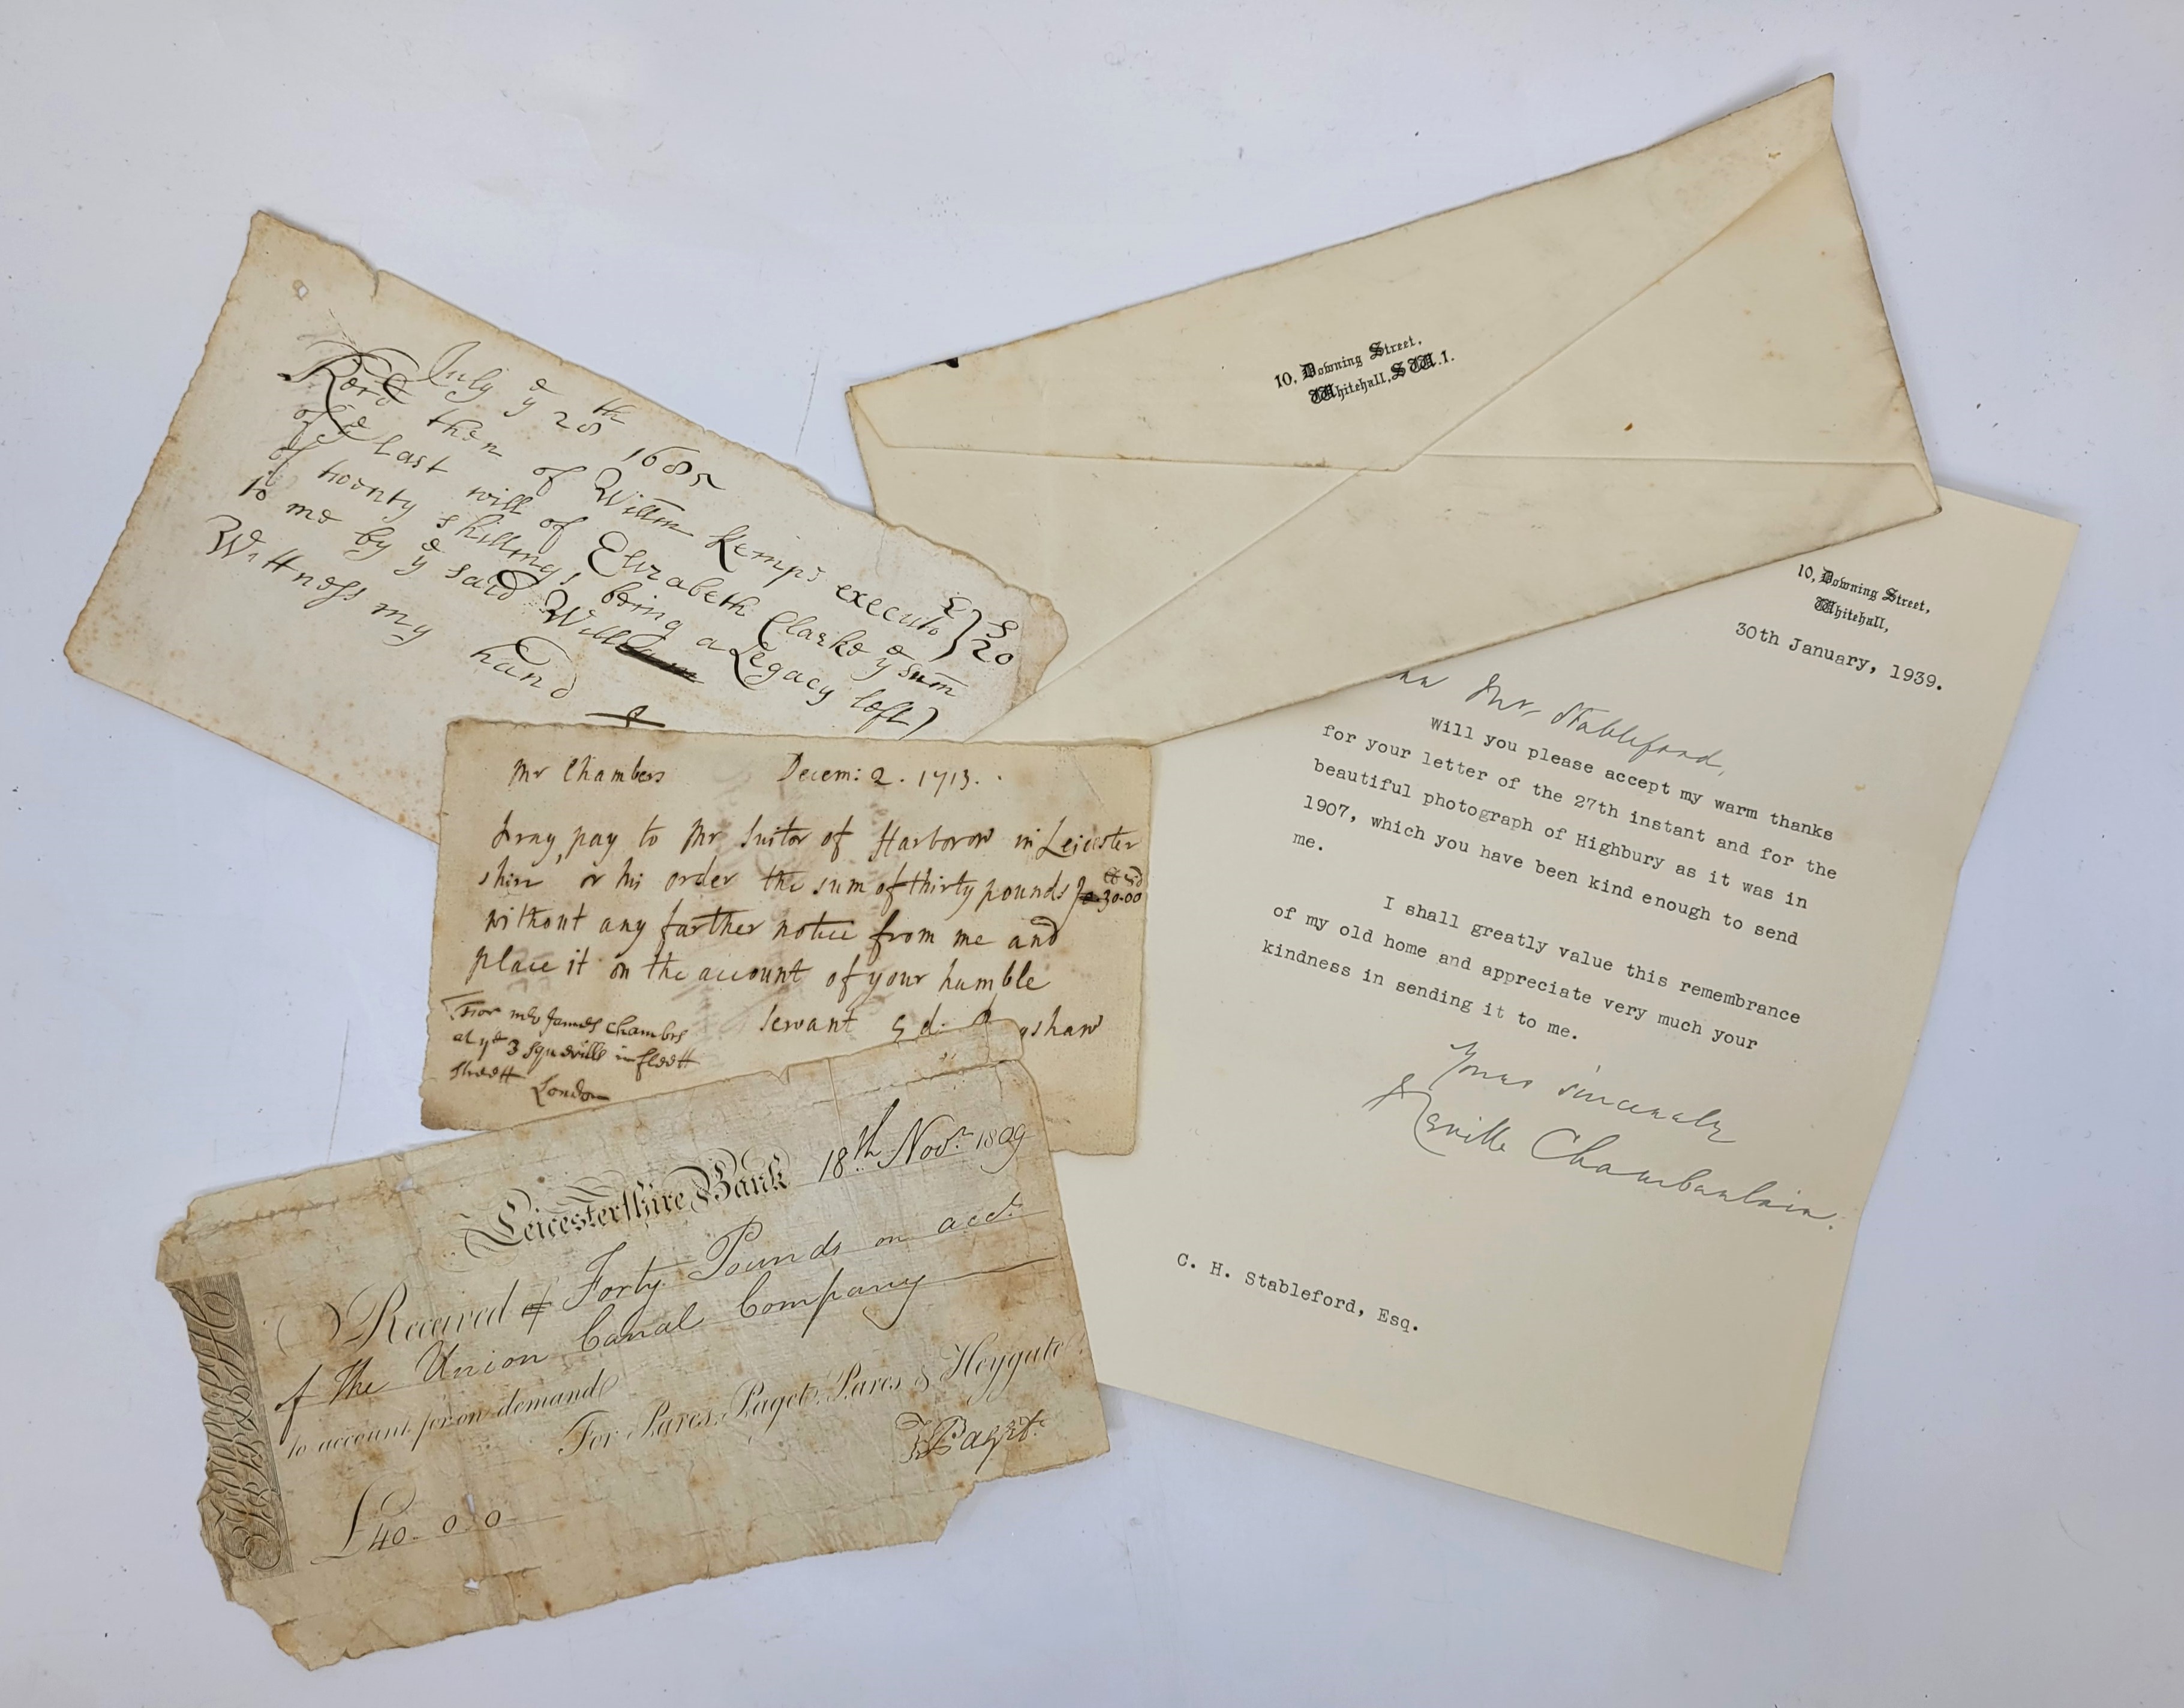 July ye 28th 1685
Recd then of Willm Kemps executor
of ye last will of Elizabeth Clarke ye sum
of twenty shillings being a Legacy left
to me by ye said Will
Wittness my hand
£ s
20
10, Downing Street,
Whitehall, S.W.1.
Mr Chambers Decem: 2. 1713.
pray pay to Mr Suitor of Harborow in Leicester
shire or his order the sum of thirty pounds 30.00
without any farther notice from me and
place it on the account of your humble
servant Ed. shaw
For mr James Chambrs
at ye 3 Squerills in fleett
streett London
Leicestershire Bank 18th Novr 1809
Received of Forty Pounds on acct
of the Union Canal Company
to account for on demand
For Pares, Paget, Pares & Heygate
T Paget
£40-0-0
10, Downing Street,
Whitehall,
30th January, 1939.
Mr. Stableford,
Will you please accept my warm thanks
for your letter of the 27th instant and for the
beautiful photograph of Highbury as it was in
1907, which you have been kind enough to send
me.
I shall greatly value this remembrance
of my old home and appreciate very much your
kindness in sending it to me.
Yours sincerely
Neville Chamberlain.
C. H. Stableford, Esq.